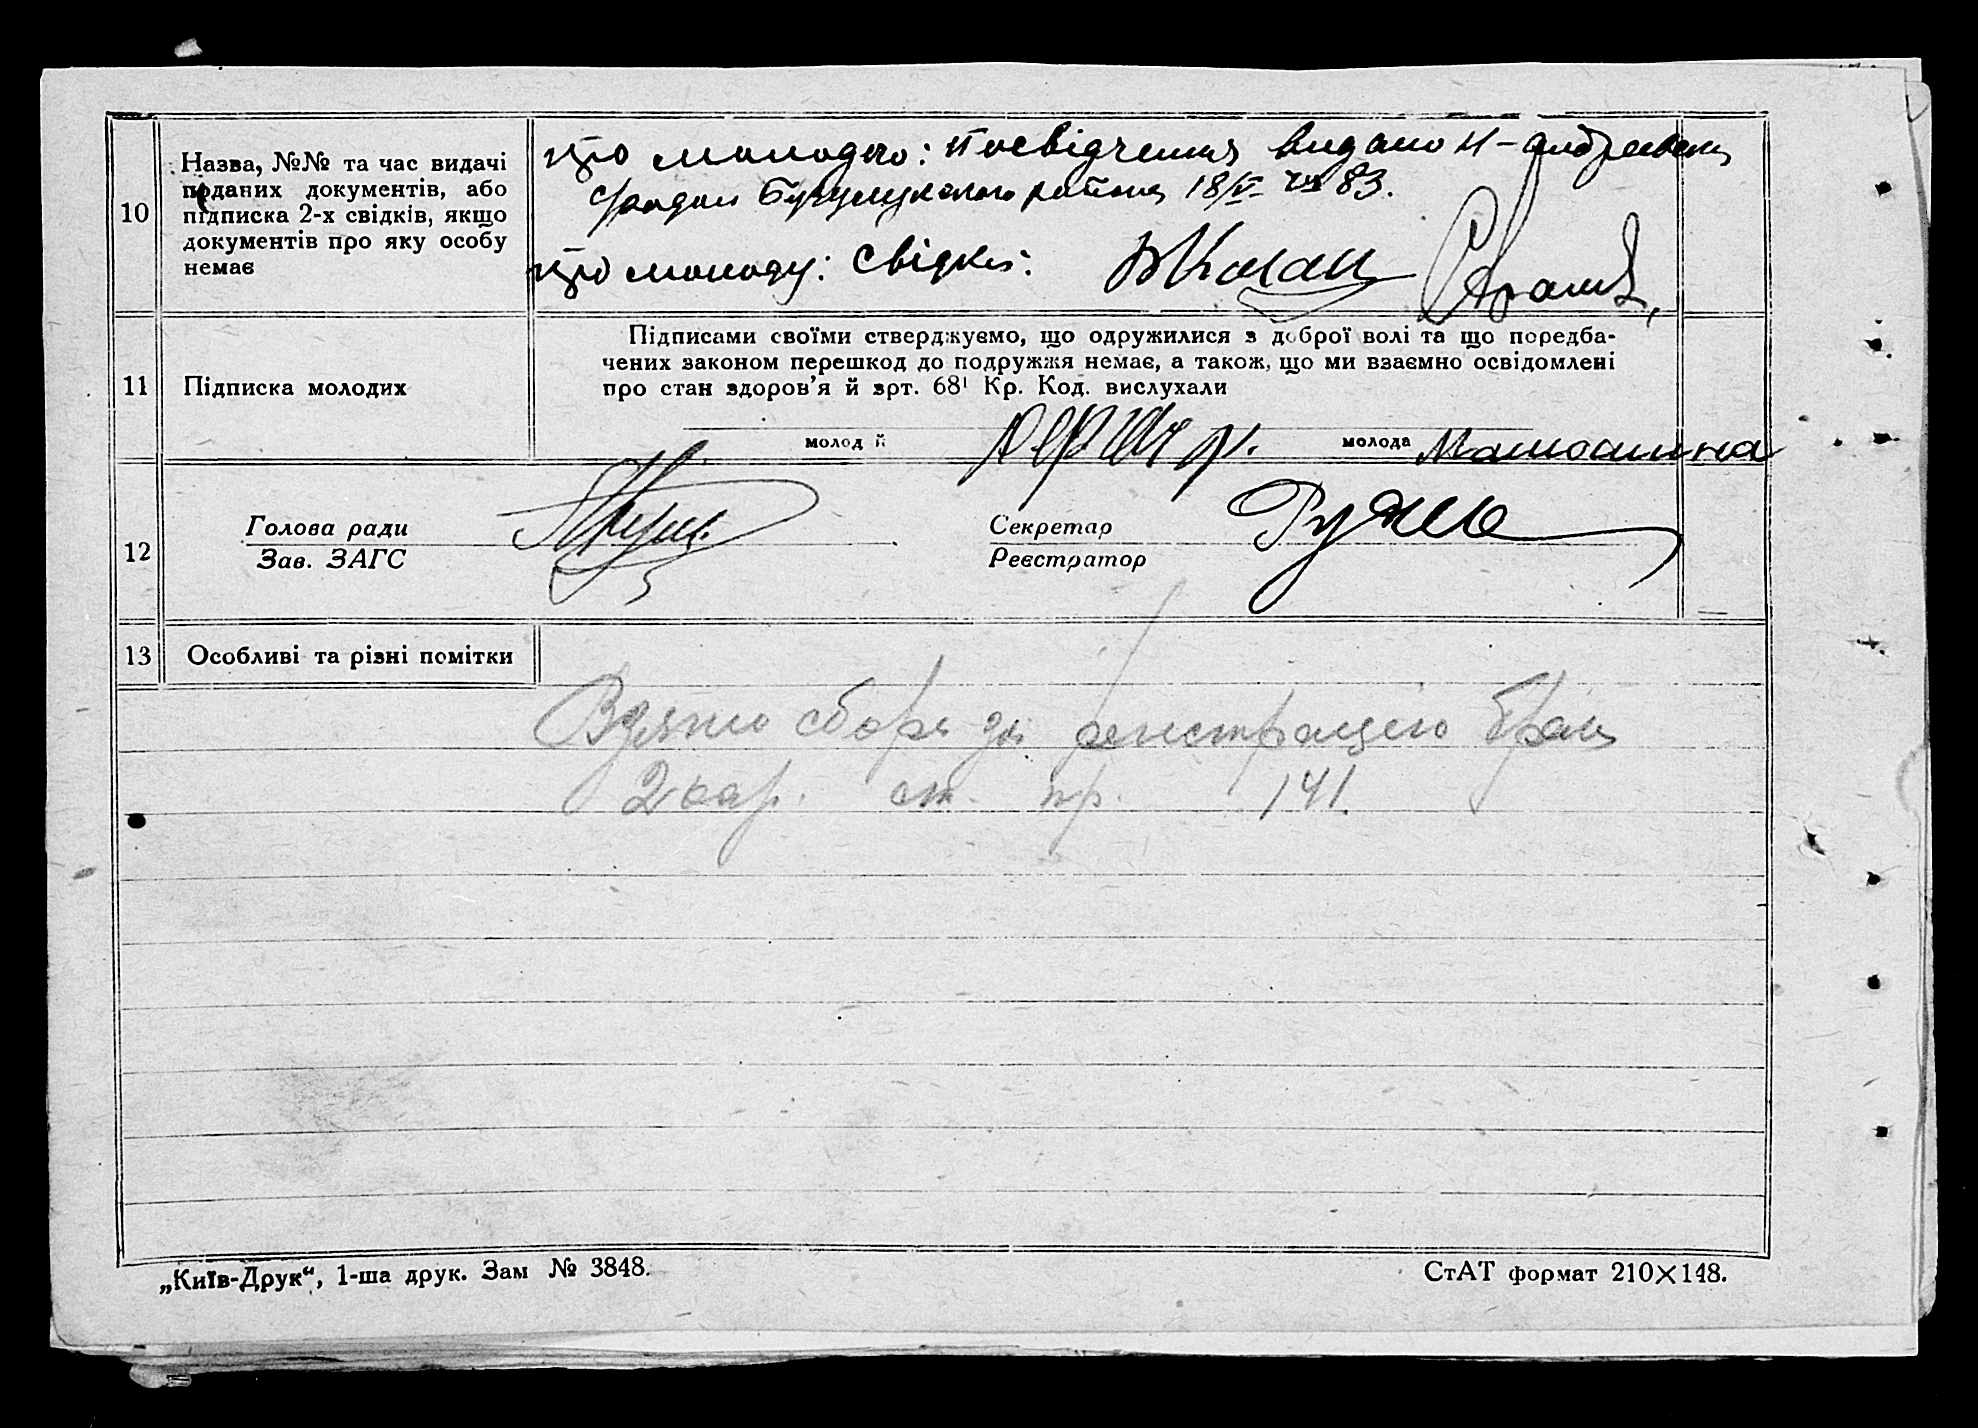 10
Назва, №№ та час видачі
поданих документів, або
підписка 2-х свідків, якщо
документів про яку особу
немає
про молодого: посвідчення видано Н-андреевским
району 18/V 83.
про молоду: Свідки:
11
Підписка молодих
Підписами своїми стверджуємо, що одружилися з доброї волі та що передба-
чених законом перешкод до подружжя немає, а також, що ми взаємно освідомлені
про стан здоров’я й арт. 68¹ Кр. Код. вислухали
молод й
молода
12
Голова ради
Зав. ЗАГС
Секретар
Реєстратор
13
Особливі та різні помітки
Взято сбора за регистрацию брака
2 кар. ст. пр. 141.
„Київ-Друк“, 1-ша друк. Зам № 3848.
СтАТ формат 210×148.